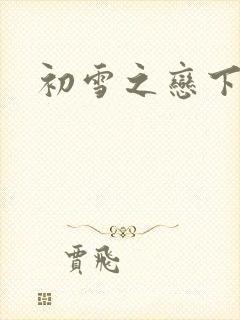 初雪之戀下
賈飛